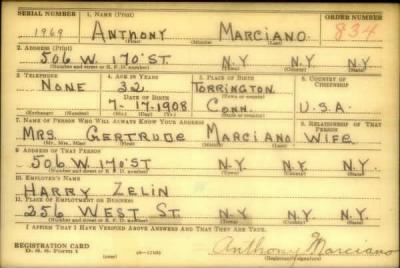 SERIAL NUMBER 1. NAME (Print) ORDER NUMBER
1969 ANTHONY MARCIANO. 834
(First) (Middle) (Last)
2. ADDRESS (Print)
506 W. 170 ST. N.Y N.Y.
(Number and street or R. F. D. number) (Town) (County) (State)
3. TELEPHONE 4. AGE IN YEARS 5. PLACE OF BIRTH 6. COUNTRY OF CITIZENSHIP
NONE 32 TORRINGTON
(Town or county)
DATE OF BIRTH
7-17-1908 CONN. U.S.A.
(Exchange) (Number) (Mo.) (Day) (Yr.) (State or country)
7. NAME OF PERSON WHO WILL ALWAYS KNOW YOUR ADDRESS 8. RELATIONSHIP OF THAT PERSON
MRS. GERTRUDE MARCIANO WIFE
(Mr., Mrs., Miss) (First) (Middle) (Last)
9. ADDRESS OF THAT PERSON
506 W. 170 ST N.Y. N.Y. N.Y.
(Number and street or R. F. D. number) (Town) (County) (State)
10. EMPLOYER'S NAME
HARRY ZELIN
11. PLACE OF EMPLOYMENT OR BUSINESS
256 WEST ST. N.Y. N.Y. N.Y.
(Number and street or R. F. D. number) (Town) (County) (State)
I AFFIRM THAT I HAVE VERIFIED ABOVE ANSWERS AND THAT THEY ARE TRUE.
REGISTRATION CARD Anthony Marciano
D. S. S. Form 1 (over) (Registrant's signature)